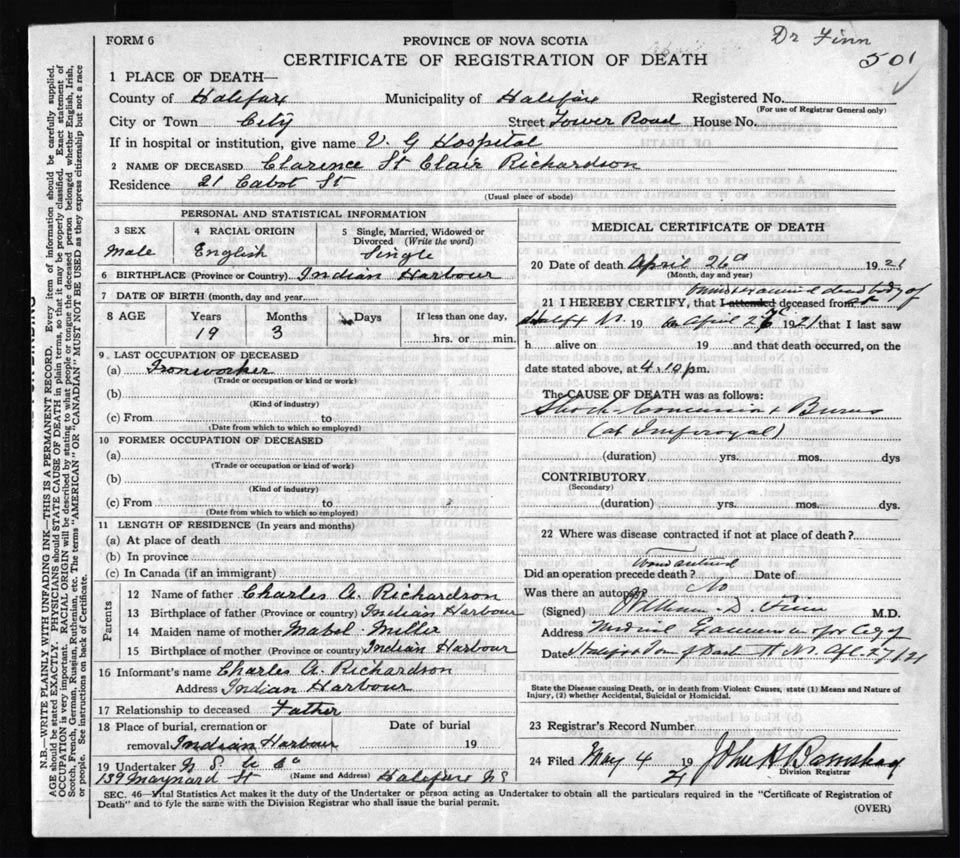 Dr Finn
501
FORM 6
PROVINCE OF NOVA SCOTIA
CERTIFICATE OF REGISTRATION OF DEATH
1 PLACE OF DEATH—
County of Halifax Municipality of Halifax Registered No.
(For use of Registrar General only)
City or Town City Street Tower Road House No.
If in hospital or institution, give name V. G Hospital
2 NAME OF DECEASED Clarence St Clair Richardson
Residence 21 Cabot St
(Usual place of abode)
PERSONAL AND STATISTICAL INFORMATION
3 SEX 4 RACIAL ORIGIN 5 Single, Married, Widowed or Divorced (Write the word)
Male English Single
6 BIRTHPLACE (Province or Country) Indian Harbour
7 DATE OF BIRTH (month, day and year
8 AGE Years Months Days If less than one day,
19 3 hrs. or min.
9 LAST OCCUPATION OF DECEASED
(a) Ironworker
(Trade or occupation or kind or work)
(b)
(Kind of industry)
(c) From to
(Date from which to which so employed)
10 FORMER OCCUPATION OF DECEASED
(a)
(Trade or occupation or kind of work)
(b)
(Kind of industry)
(c) From to
(Date from which to which so employed)
11 LENGTH OF RESIDENCE (In years and months)
(a) At place of death
(b) In province
(c) In Canada (if an immigrant)
Parents
12 Name of father Charles A. Richardson
13 Birthplace of father (Province or country) Indian Harbour
14 Maiden name of mother Mabel Miller
15 Birthplace of mother (Province or country) Indian Harbour
16 Informant's name Charles A. Richardson
Address Indian Harbour
17 Relationship to deceased Father
18 Place of burial, cremation or Date of burial
removal Indian Harbour 19
19 Undertaker N S U Co
139 Maynard St (Name and Address) Halifax NS
MEDICAL CERTIFICATE OF DEATH
20 Date of death April 26th 1921
(Month, day and year)
dead body of
21 I HEREBY CERTIFY, that I attended deceased from at
19 on April 26 1921 that I last saw
h alive on 19 and that death occurred, on the
date stated above, at 4.10 pm.
The CAUSE OF DEATH was as follows:
Shock - Concussion & Burns
(at Imperoyal)
(duration) yrs. mos. dys
CONTRIBUTORY
(Secondary)
(duration) yrs. mos. dys.
22 Where was disease contracted if not at place of death?
Did an operation precede death? Date of
Was there an autopsy? No
(Signed) William D. Finn M.D.
Address Medical Examiner for City of
Date Halifax Town of Dart N.S. Apl. 27/21
State the Disease causing Death, or in death from Violent Causes, state (1) Means and Nature of
Injury, (2) whether Accidental, Suicidal or Homicidal.
23 Registrar's Record Number
24 Filed May 4 1921 John H Barnstead
Division Registrar
SEC. 46—Vital Statistics Act makes it the duty of the Undertaker or person acting as Undertaker to obtain all the particulars required in the "Certificate of Registration of
Death" and to fyle the same with the Division Registrar who shall issue the burial permit.
(OVER)
N.B.—WRITE PLAINLY WITH UNFADING INK—THIS IS A PERMANENT RECORD. Every item of information should be carefully supplied.
AGE should be stated EXACTLY. PHYSICIANS should STATE CAUSE OF DEATH in plain terms, so that it may be properly classified. Exact statement of
OCCUPATION is very important. RACIAL ORIGIN will be described by stating to what people or tongue the deceased person belonged whether English, Irish,
Scotch, French, German, Russian, Ruthenian, etc. The terms "AMERICAN" OR "CANADIAN" MUST NOT BE USED as they express citizenship but not a race
or people. See instructions on back of Certificate.